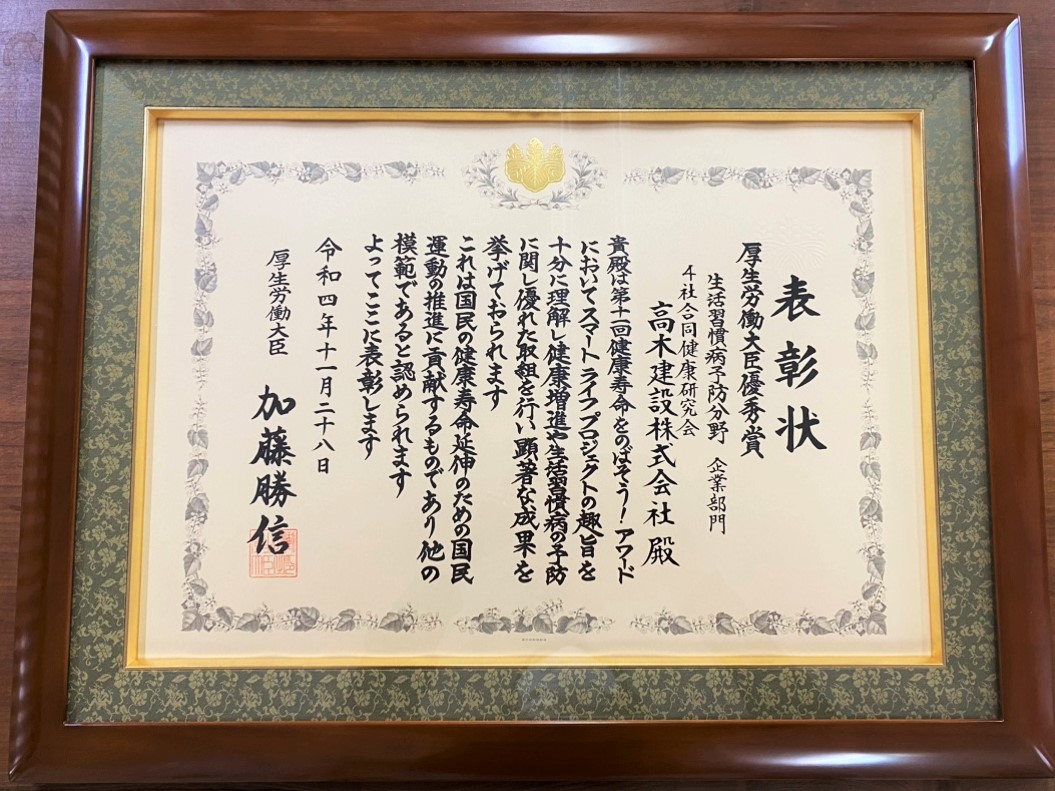 表彰状
厚生労働大臣優秀賞
生活習慣病予防分野 企業部門
4社合同健康研究会
高木建設株式会社 殿
貴殿は第十一回健康寿命をのばそう!アワード
においてスマートライフプロジェクトの趣旨を
十分に理解し健康増進や生活習慣病の予防
に関し優れた取組を行い顕著な成果を
挙げておられます
これは国民の健康寿命延伸のための国民
運動の推進に貢献するものであり他の
模範であると認められます
よってここに表彰します
令和四年十一月二十八日
厚生労働大臣
加藤勝信